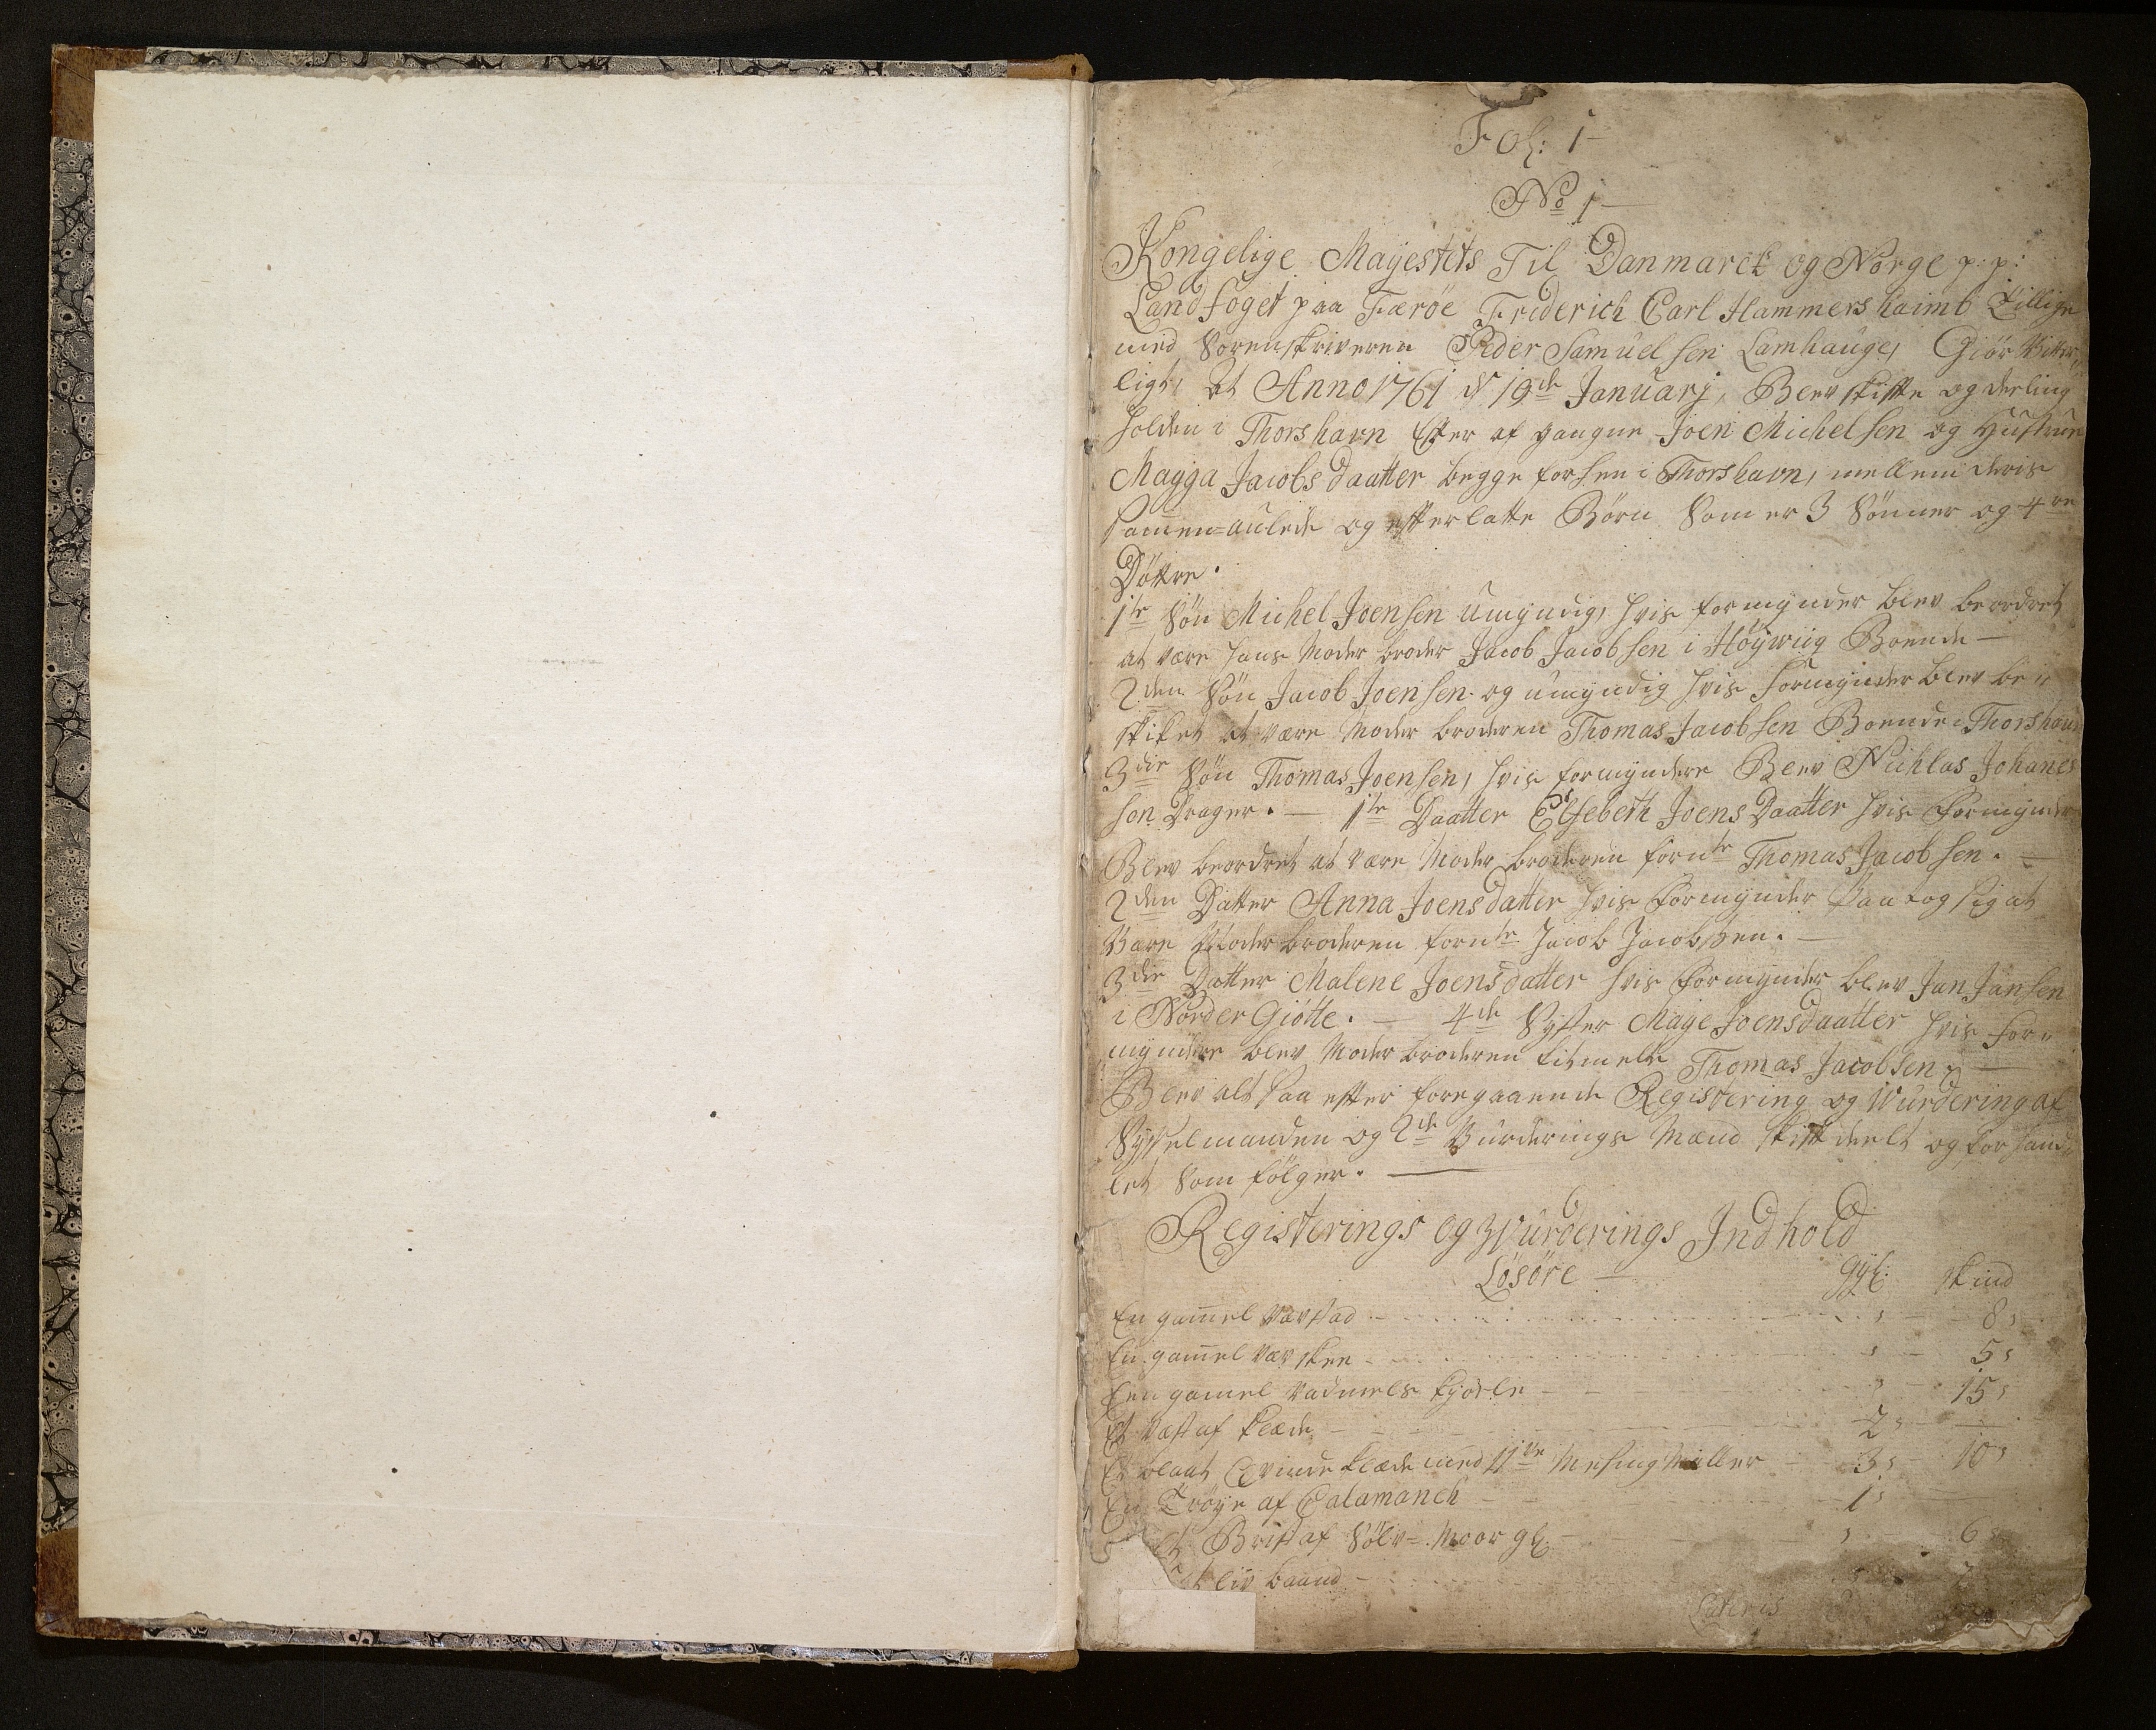 Fol: 1
No 1
Kongelige Mayestets Til Danmarck og Norge p: p:
Landfoget paa Færöe Friderich Carl Hammershaimb Tillige
med Sorenskriveren Peder Samuelsen Lamhauge, Giör Vitter-
ligt, At Anno 1761 d 19de Januarj, Blev skifte og deeling
holden i Thorshavn Efter afgangne Joen Michelsen og Hustrue
Magga Jacobs Daatter begge forhen i Thorshavn, mellem deris
sammen-aulede og efterlatte Börn Som er 3 Sönner og 4re
Döttre.
1te Sön Michel Joensen Umyndig, hvis formynder blev beordret
at være hans Moder broder Jacob Jacobsen i Höywiig Boende —
2den Sön Jacob Joensen og umyndig hvis formynder blev be-
skiket at være Moder broderen Thomas Jacobsen Boende i Thorshavn
3die Sön Thomas Joensen, hvis formyndere Blev Nichlas Johanes
sen Drager. — 1te Daatter Elsebeth Joens Daatter hvis formynder
Blev beordret at være Moder broderen fornte Thomas Jacobsen. —
2den Datter Anna Joensdatter hvis formynder Paatog sig at
Være Moder broderen fornte Jacob Jacobsen. —
3die Datter Malene Joensdatter hvis formynder blev Jan Jansen
i Nörder Giötte. — 4de Syster Mage Joensdaatter hvis for-
myndere blev Moder broderen bitmelte Thomas Jacobsen —
Blev altsaa efter foregaaende Registering og Wurdering af
Sysselmanden og 2de Vurderings Mænd skift deelt og forhand-
let Som fölger. —
Registerings og Wurderings Indhold
Lösöre — gyl: skind
En gammel Vævstad - - - , - 8,
En gammel Vævskee - - - , - 5,
Een gamel Vadmels kjole - - - , - 15,
Et Væst af klæde - - - 2, -
Et blaat Qvinde klæde med 11ve Mesing Maller - 3, - 10,
En Tröye af Calamanch - - 1, -
Et Bröst af Sölv-Moor gl: - - , - 6,
Et liv baand - - -
Lateris